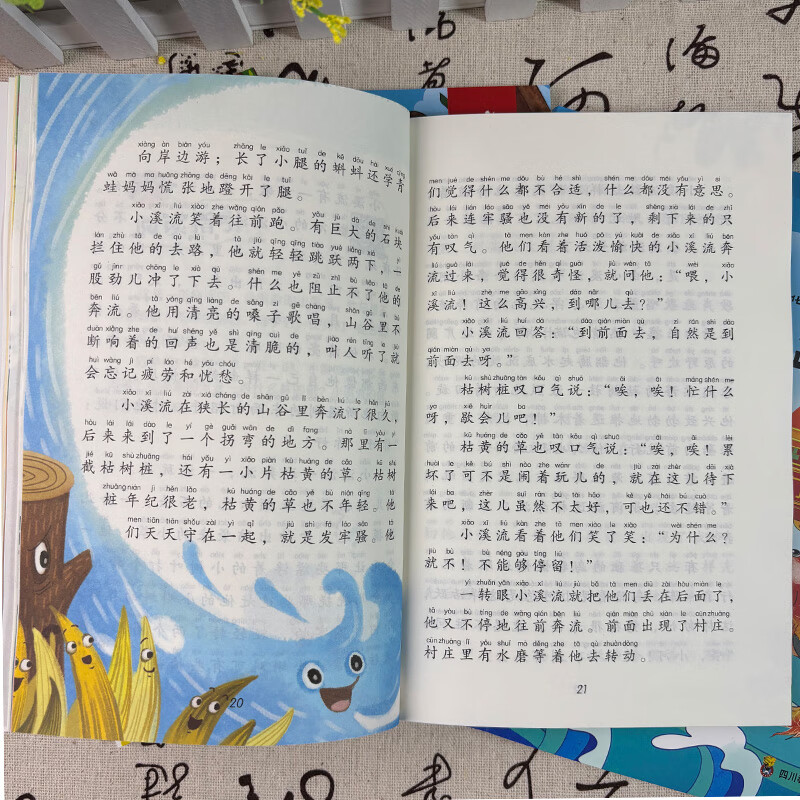 向岸边游；长了小腿的蝌蚪还学青
蛙妈妈慌张地蹬开了腿。
小溪流笑着往前跑。有巨大的石块
拦住他的去路，他就轻轻跳跃两下，一
股劲儿冲了下去。什么也阻止不了他的
奔流。他用清亮的嗓子歌唱，山谷里不
断响着的回声也是清脆的，叫人听了就
会忘记疲劳和忧愁。
小溪流在狭长的山谷里奔流了很久，
后来来到了一个拐弯的地方。那里有一
截枯树桩，还有一小片枯黄的草。枯树
桩年纪很老，枯黄的草也不年轻。他
们天天守在一起，就是发牢骚。他
20
们觉得什么都不合适，什么都没有意思。
后来连牢骚也没有新的了，剩下来的只
有叹气。他们看着活泼愉快的小溪流奔
流过来，觉得很奇怪，就问他：“喂，小
溪流！这么高兴，到哪儿去？”
小溪流回答：“到前面去，自然是到
前面去呀。”
枯树桩叹口气说：“唉，唉！忙什么
呀，歇会儿吧！”
枯黄的草也叹口气说：“唉，唉！累
坏了可不是闹着玩儿的，就在这儿待下
来吧，这儿虽然不太好，可也还不错。”
小溪流看着他们笑了笑：“为什么？
就不！不能够停留！”
一转眼小溪流就把他们丢在后面了，
他又不停地往前奔流。前面出现了村庄。
村庄里有水磨等着他去转动。
21
四川